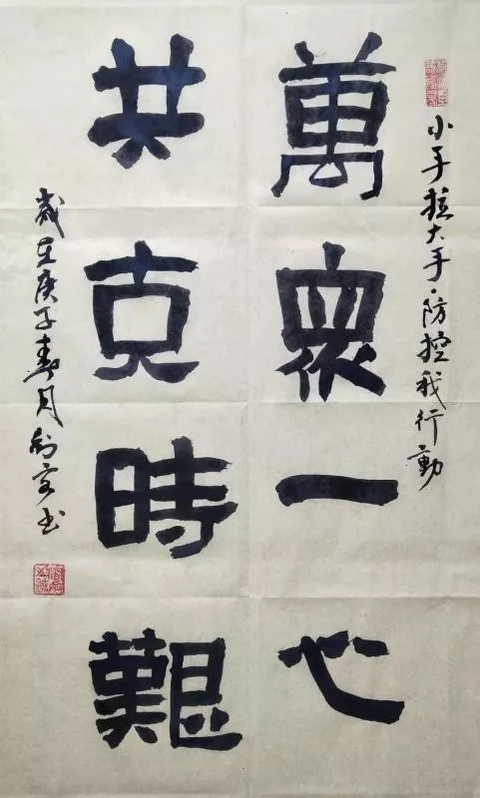 小手拉大手·防控我行動
萬眾一心
共克時艱
歲在庚子春月